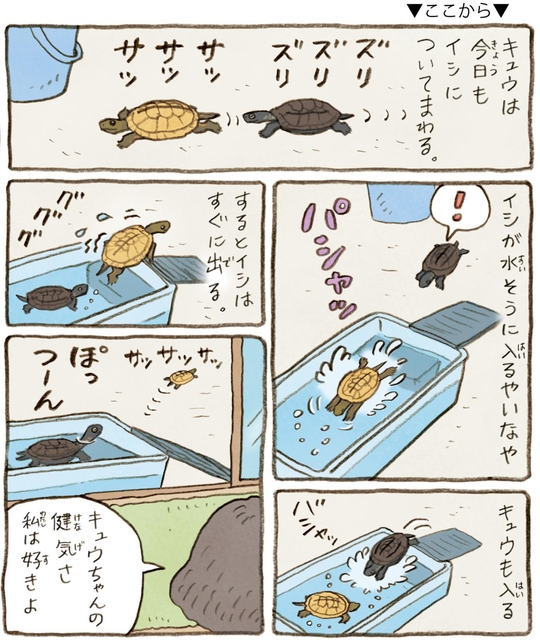 ▼ここから▼
キュウは
今日も
イシに
ついてまわる。
きょう
ズリ
ズリ
ズリ
サッ
サッ
サッ
イシが水そうに入るやいなや
すい
はい
！
パシャッ
キュウも入る
はい
バシャッ
するとイシは
すぐに出る。
で
グ
グ
グ
サッ
サッ
サッ
ぽっ
つーん
キュウちゃんの
健気さ
けなげ
私は好きよ
わたし
す